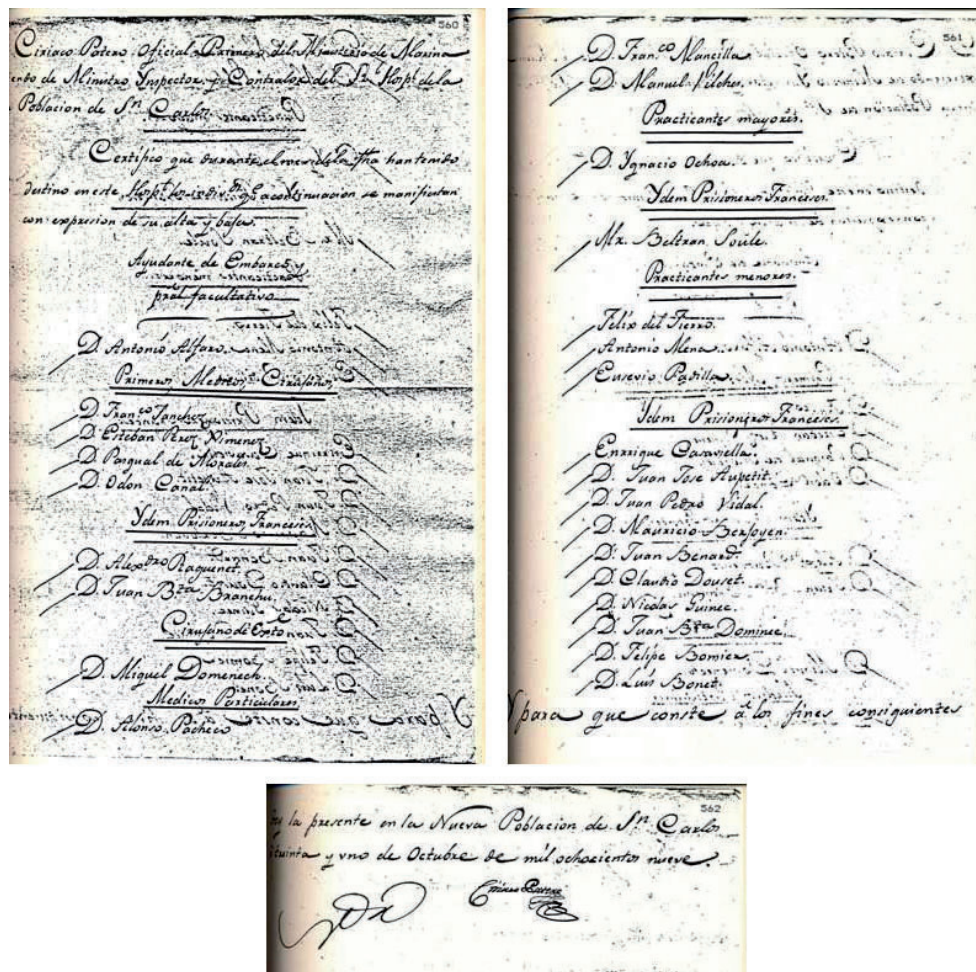 560
Ciriaco Patero Oficial Primero del Ministerio de Marina
de Ministro Ynspector, y Contralor del Rl. Hospl. de la
Poblacion de Sn. Carlos
Certifico que durante el mes de la fha han tenido
destino en este Hospl. los individs. q. a continuacion se manifiestan
con expresion de su alta y baja.
Ayudante de Embarco y
pral facultativo
D. Antonio Alfaro.
Primeros Medicos Cirujanos
D. Franco. Sanchez
D. Esteban Perez Ximenez
D. Pasqual de Morales.
D. Odon Canal.
Ydem Prisioneros Franceses
D. Alexdro Raguenet.
D. Juan Bta Branchu.
Cirujano de
D. Miguel Domenech.
Medicos Particulares
D. Alonso Pacheco
561
D. Franco. Mancilla
D. Manuel Vilches.
Practicantes mayores.
D. Ygnacio Ochoa.
Ydem Prisioneros Franceses.
Mr. Beltran Soule.
Practicantes menores.
Felix del Fierro.
Antonio Mena
Eusevio Padilla.
Ydem Prisioneros Franceses.
Enrrique Casaviella.
D. Juan Jose Aupetit.
D. Juan Pedro Vidal.
D. Mauricio Bersoyen.
D. Juan Benard.
D. Claudio Douset.
D. Nicolas Guinee.
D. Juan Bta Dominee.
D. Felipe Bomier.
D. Luis Bonet.
Y para que conste á los fines consiguientes
562
la presente en la Nueva Poblacion de Sn. Carlos
treinta y uno de Octubre de mil ochocientos nueve.
Ciriaco Patero